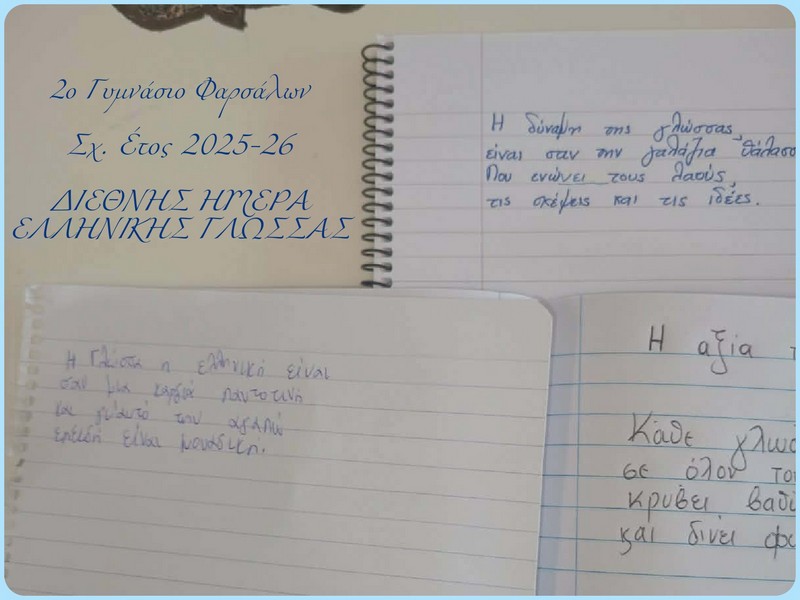 2ο Γυμνάσιο Φαρσάλων
Σχ. Έτος 2025-26
ΔΙΕΘΝΗΣ ΗΜΕΡΑ
ΕΛΛΗΝΙΚΗΣ ΓΛΩΣΣΑΣ
Η δύναμη της γλώσσας,
είναι σαν την γαλάζια θάλασσ
Που ενώνει τους λαούς,
τις σκέψεις και τις ιδέες.
Η Γλώσσα η ελληνική είναι
σαν μια καρδιά παντοτινή
και γι'αυτό την αγαπώ
επειδή είναι μοναδικη.
Η αξία
Κάθε γλωσ
σε όλον το
κρύβει βαθι
και δίνει φω